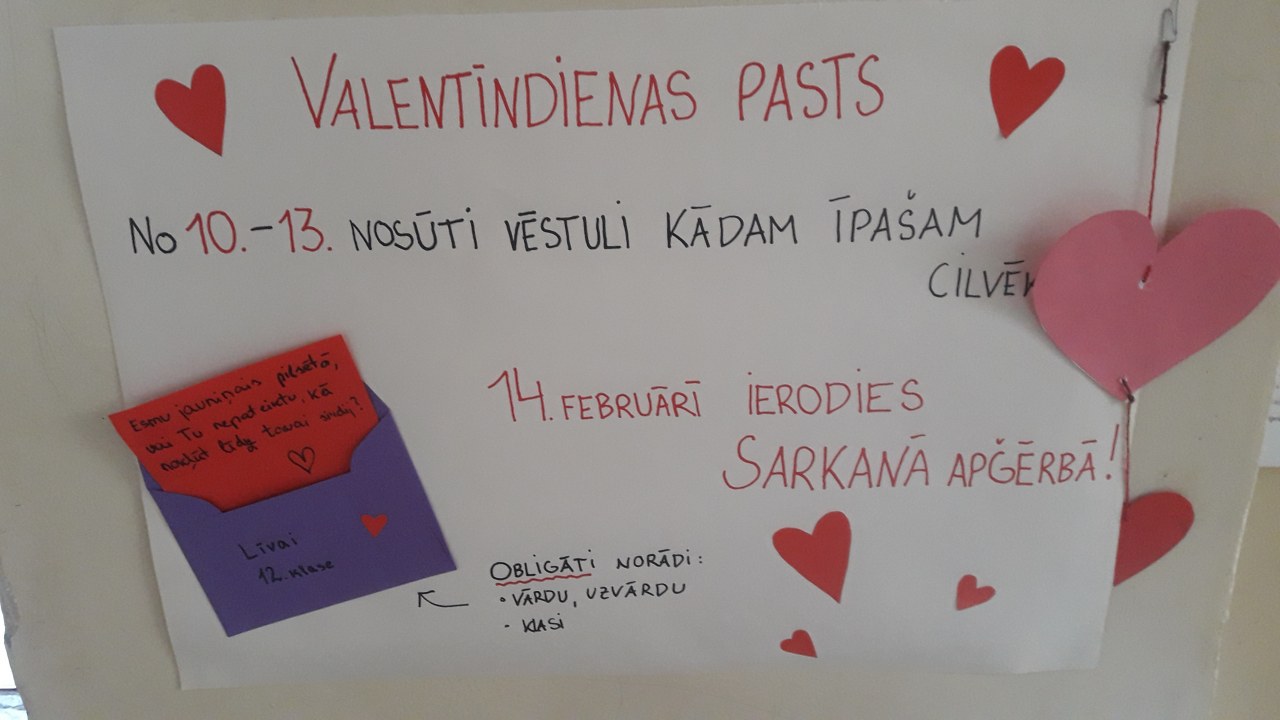 VALENTĪNDIENAS PASTS
No 10.-13. NOSŪTI VĒSTULI KĀDAM ĪPAŠAM
CILVĒK
14. FEBRUĀRĪ IERODIES
SARKANĀ APĢĒRBĀ!
Esmu jauniņais pilsētā,
vai Tu nepateiktu, kā
nokļūt līdz tavai sirdij?
Līvai
12. klase
OBLIGĀTI NORĀDI:
• VĀRDU, UZVĀRDU
- KLASI